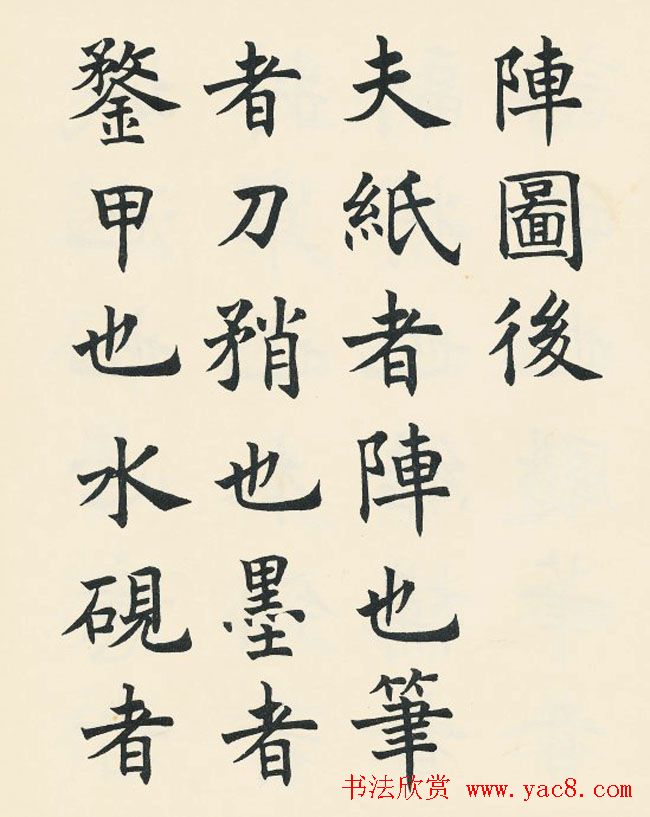 陣圖後
夫紙者陣也筆
者刀矟也墨者
鍪甲也水硯者
书法欣赏 www.yac8.com